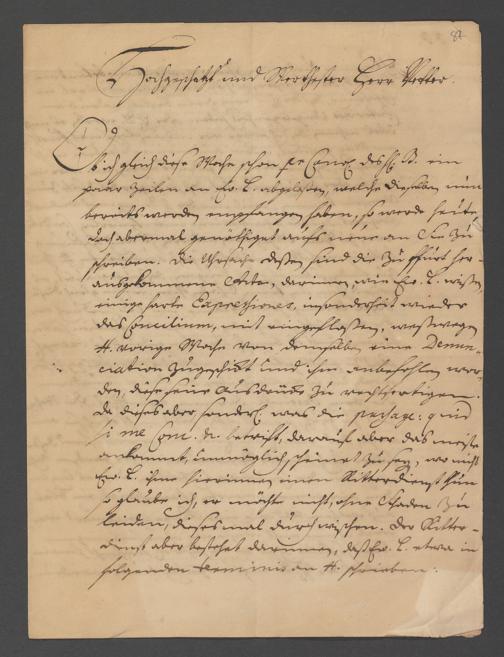 82
Hochgeschätzt und Werthester Herr Vetter.
Ob ich gleich diese Woche schon des H. B. ein
paar Zeilen an Ew. L. abgelaßen, welche dieselben nun
bereits werden empfangen haben, so werde heute
doch abermal genöthiget aufs neue an Sie zu
schreiben. Die Ursache deßen sind die zu her-
ausgekommene Acta, darinnen, wie Ew. L. wißen,
einige harte Expressiones, insonderheit wieder
das Concilium, mit eingefloßen, weßwegen
H. vorige Woche von demselben eine Denun-
ciation zugeschickt und ihm anbefohlen wor-
den, diese seine Ausdrücke zu rechtfertigen.
Da dieses aber sonderl. was die passage: quid
si me Com. &c. betrifft, darauf aber das meiste
ankommt, unmöglich scheinet zu seyn, wo nicht
Ew. L. ihme hierinnen einen Ritterdienst thun
so glaube ich, er möchte nicht, ohne Schaden zu
leiden, dieses mal durchwischen. Der Ritter-
dienst aber bestehet darinnen, daß Ew. L. etwa in
folgenden terminis an H. schrieben: